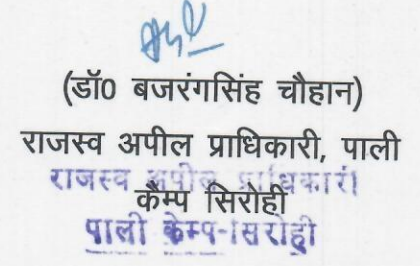 (डॉ0 बजरंगसिंह चौहान)
राजस्व अपील प्राधिकारी, पाली
राजस्व अपील प्राधिकारी
कैम्प सिरोही
पाली केम्प-सिरोही